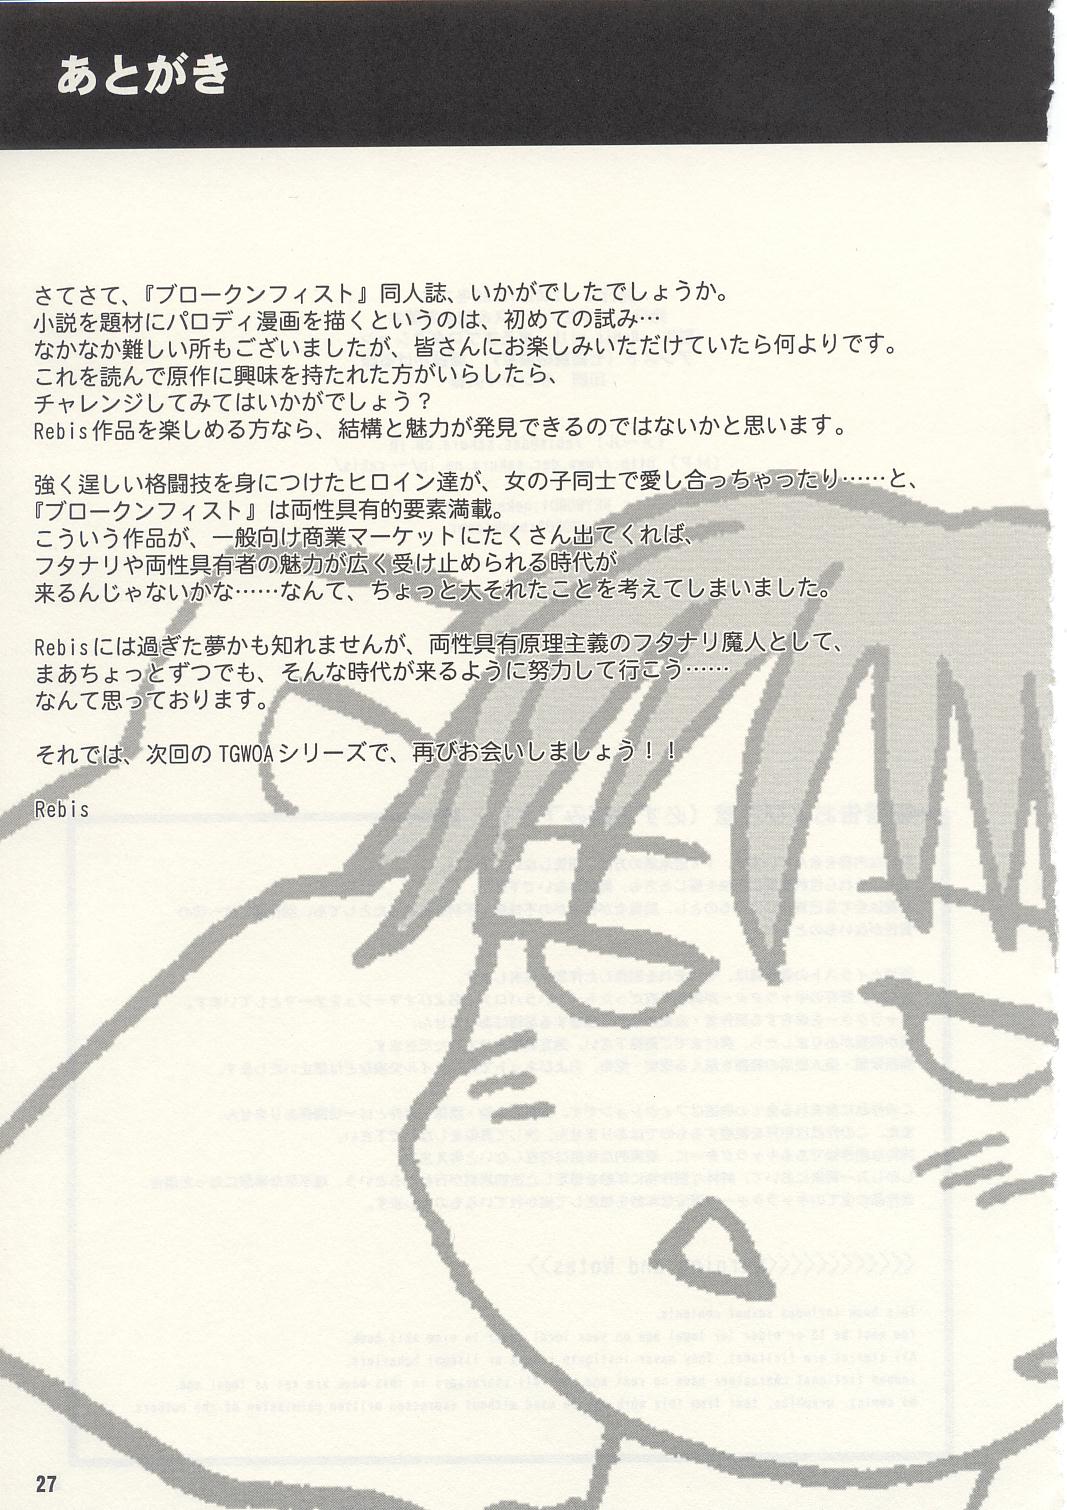 あとがき
さてさて、『ブロークンフィスト』同人誌、いかがでしたでしょうか。
小説を題材にパロディ漫画を描くというのは、初めての試み…
なかなか難しい所もございましたが、皆さんにお楽しみいただけていたら何よりです。
これを読んで原作に興味を持たれた方がいらしたら、
チャレンジしてみてはいかがでしょう？
Rebis作品を楽しめる方なら、結構と魅力が発見できるのではないかと思います。
強く逞しい格闘技を身につけたヒロイン達が、女の子同士で愛し合っちゃったり……と、
『ブロークンフィスト』は両性具有的要素満載。
こういう作品が、一般向け商業マーケットにたくさん出てくれば、
フタナリや両性具有者の魅力が広く受け止められる時代が
来るんじゃないかな……なんて、ちょっと大それたことを考えてしまいました。
Rebisには過ぎた夢かも知れませんが、両性具有原理主義のフタナリ魔人として、
まあちょっとずつでも、そんな時代が来るように努力して行こう……
なんて思っております。
それでは、次回のTGWOAシリーズで、再びお会いしましょう！！
Rebis
27